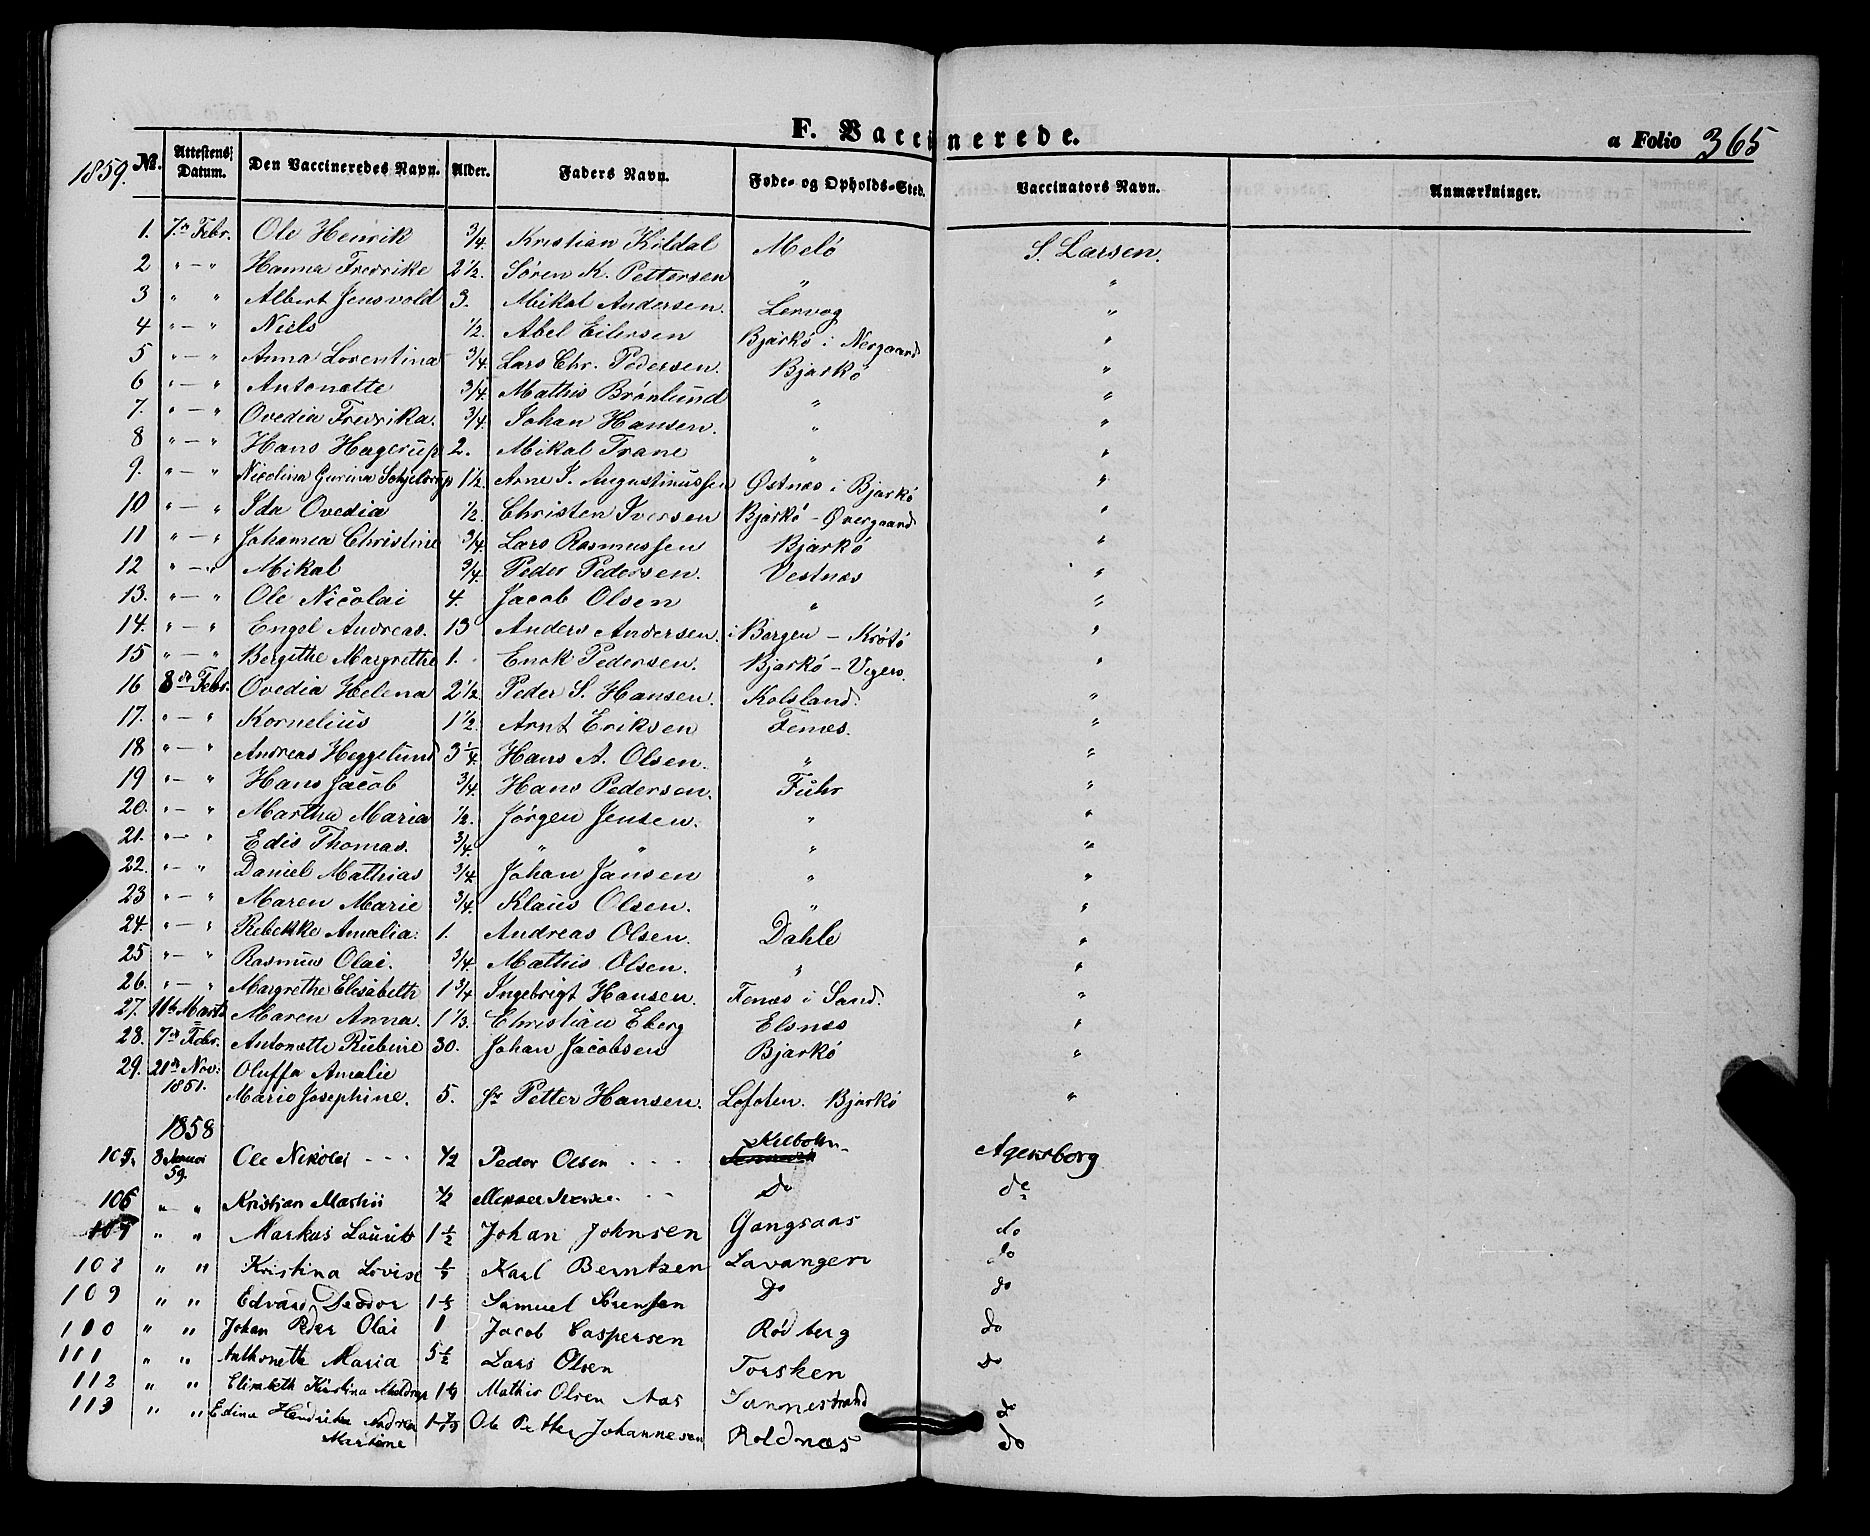 F. Vaccinerede.
a Folio 365
1859. No. Attestens Datum. Den Vaccineredes Navn. Alder. Faders Navn. Føde- og Opholds-Sted. Vaccinators Navn. Anmærkninger.
1. 7de Febr. Ole Henrik 3/4. Kristian Kildal Melö S. Larsen.
2 " — " Hanna Fredrike 2 1/2. Sören K. Pettersen " "
3 " " Albert Jensvold 3. Mikal Andersen. Lervog "
4 " — " Niels 1/2. Abel Eilersen Bjarkö i Nergaard "
5 " — " Anna Lorentina 3/4. Lars Chr. Pedersen. Bjarkö "
6 " — " Antonette 3/4. Mathis Brönlund " "
7. " — " Ovedia Fredrika. 3/4. Johan Hansen. " "
8 " — " Hans Hagerup 2. Mikal Trane " "
9. " — " Nicolina Gurina Schjelderup 1 1/2. Arne J. Augustinussen Østnæs i Bjarkö "
10 " — " Ida Ovedia 1/2. Christen Iversen Bjarkö – Øvergaard "
11 " — " Johanna Christine 3/4. Lars Rasmussen Bjarkö "
12 " — " Mikal 3/4. Peder Pedersen. Vestnæs "
13. " — " Ole Nicolai 4. Jacob Olsen " "
14. " — " Engel Andreas. 13 Anders Andersen. i Bergen – Krötö "
15 " — " Bergithe Margrethe 1. Enok Pedersen. Bjarkö – "
16 8de Febr. Ovedia Helena 2 1/2. Peder S. Hansen. Kolsland. "
17. " — " Kornelius 1 1/2. Arnt Eriksen Fenes. "
18 " — " Andreas Heggelund 3 1/4. Hans A. Olsen. " "
19 " — " Hans Jacob 3/4. Hans Pedersen. Fuhr "
20. " — " Martha Maria 1/2. Jörgen Jensen. " "
21. " — " Edis Thomas. 3/4. " " " "
22. " — " Daniel Mathias 3/4. Johan Jansen " "
23 " — " Maren Marie 3/4. Klaus Olsen. " "
24. " — " Rebekke Amalia. 1. Andreas Olsen. Dahle "
25 " — " Rasmus Olai. 3/4. Mathis Olsen. " "
26. " — " Margrethe Elisabeth 1 3/4. Ingebrigt Hansen. Fenæs i Sand. "
27. 11te Marts Maren Anna. 1 1/3. Christian Eberg Elsnæs "
28. 7de Febr. Antonette Rubine 30. Johan Jacobsen Bjarkö "
29. 21de Nov: Oluffa Amalie
1851. Marie Josephine. 5. Petter Hansen. Lofoten. Bjarkö "
1858
105. 8 Januar Ole Nikolai - - - 1/2 Peder Olsen - - - Kilbotn Agersborg
59.
106 " " Kristian Martin 1/2 Do do
107 " " Markus Laurits 1 1/2 Johan Johnsen Gangsaas do
108 " " Kristina Lovise Karl Berntzen Lavangen do
109 " " Edvard Samuel Sörensen Do do
110 " " Johan Peder Olai 1 Jacob Caspersen Rödberg do
111 " " Anthonette Maria 5 1/2 Lars Olsen Torsken do
112 " " Elisabeth Kirstina Mathis Olsen Aas Sannestrand do
113 " " Edina Hendrika Andrea Ole Petter Johannesen Roldnæs do
Martine